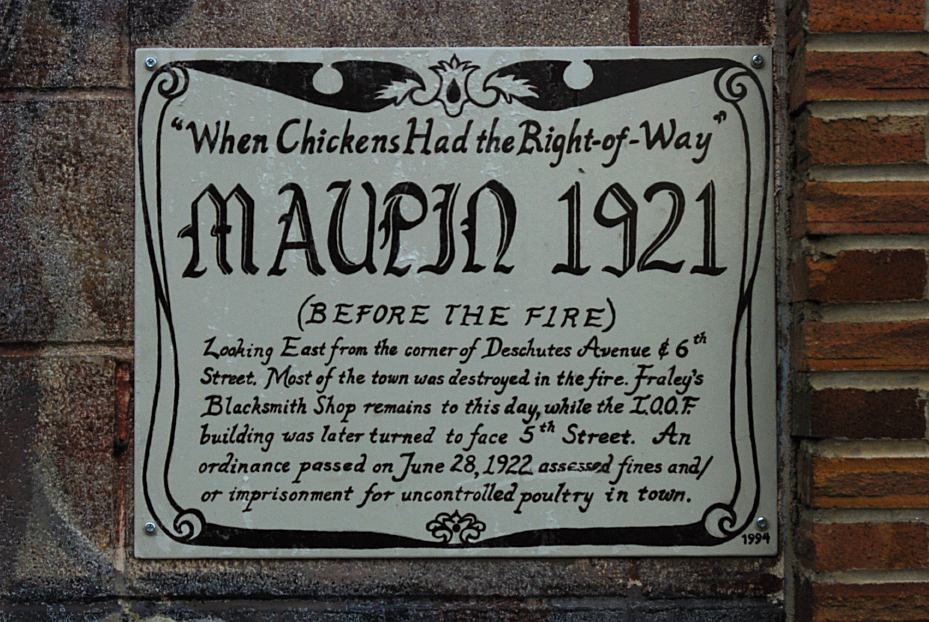 "When Chickens Had the Right-of-Way"
MAUPIN 1921
(BEFORE THE FIRE)
Looking East from the corner of Deschutes Avenue & 6th
Street. Most of the town was destroyed in the fire. Fraley's
Blacksmith Shop remains to this day, while the I.O.O.F.
building was later turned to face 5th Street. An
ordinance passed on June 28, 1922 assessed fines and/
or imprisonment for uncontrolled poultry in town.
1994